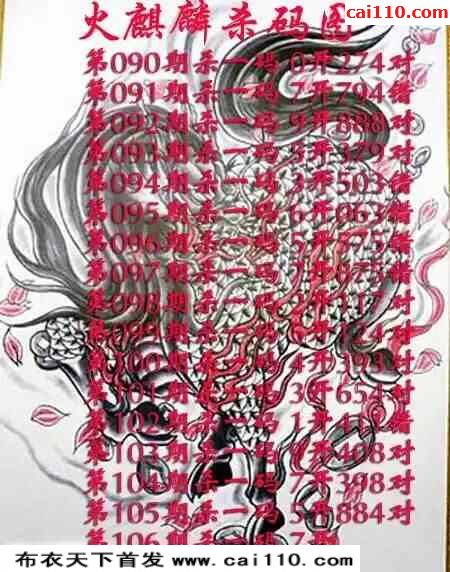 cai110.com
火麒麟杀码图
第090期杀一码 0开274对
第091期杀一码 7开794错
第092期杀一码 9开888对
第093期杀一码 开 对
第094期杀一码 3开503错
第095期杀一码 6开063错
第096期杀一码 5开775错
第097期杀一码 开875错
第098期杀一码 开117对
第099期杀一码 开124对
第100期杀一码 4开393对
第101期杀一码 3开654对
第102期杀一码 1开 错
第103期杀一码 开408对
第104期杀一码 7开398对
第105期杀一码 5开884对
第106期杀一码 7开
布衣天下首发 www.cai110.com